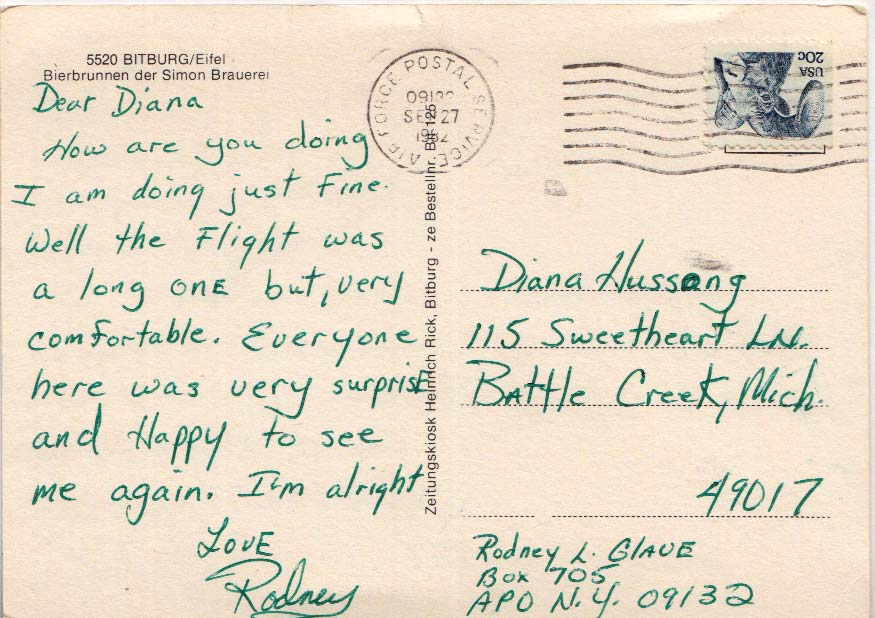 5520 BITBURG/Eifel
Bierbrunnen der Simon Brauerei
Dear Diana
How are you doing
I am doing just Fine.
Well the Flight was
a long ONE but, very
comfortable. Everyone
here was very surprisE
and Happy to see
me again. I'm alright
LOVE
Rodney
Zeitungskiosk Heinrich Rick, Bitburg - ze Bestellnr. Bit 125
AIR FORCE POSTAL SERVICE
09132
SEP 27
1982
USA
20c
Diana Hussong
115 Sweetheart LN.
BAttle Creek, Mich.
49017
Rodney L. GlAUE
Box 705
APO N.Y. 09132